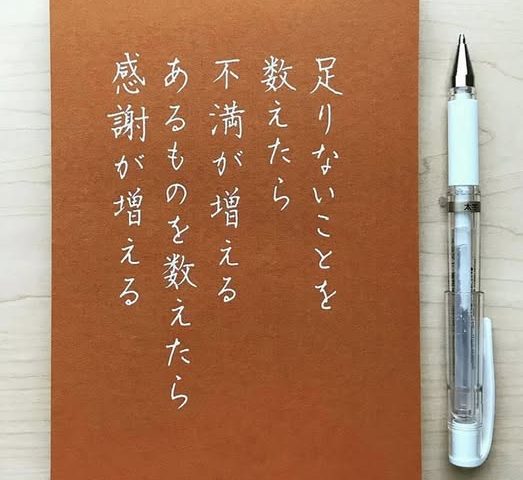 足りないことを
数えたら
不満が増える
あるものを数えたら
感謝が増える
太